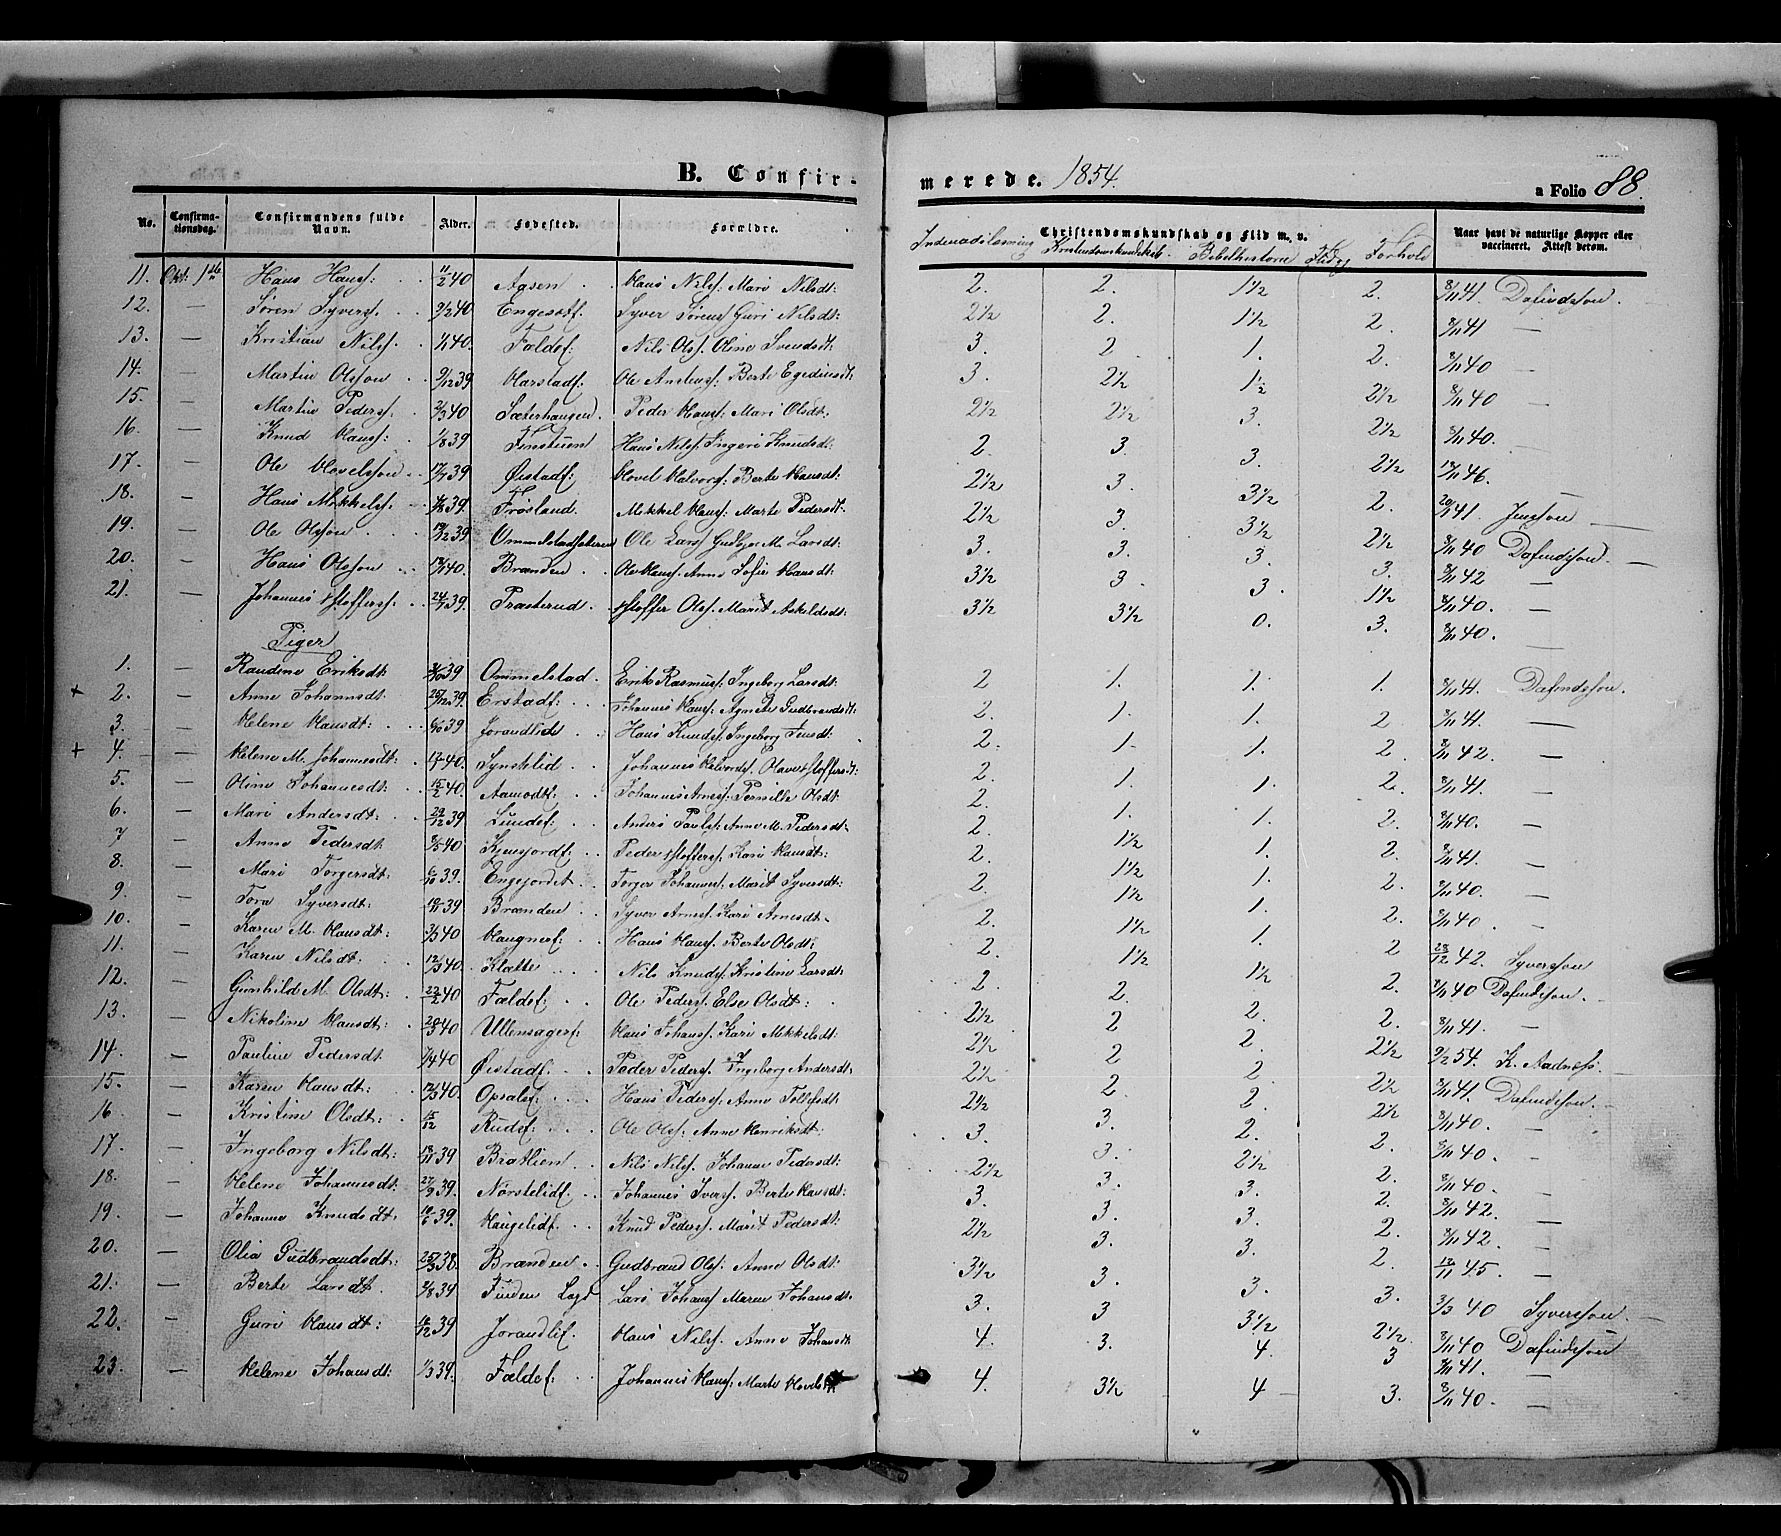 B. Confir-
merede. 1854.
a Folio 88.
No. Confirmationsdag. Confirmandens fulde Navn. Alder. Fødested. Forældre. Christendomskundskab og Flid m. v. Naar havt de naturlige Kopper eller vaccineret. Attest derom.
Indenadslæsning Kristendomskundskab. Bibelhistorie Flid og Forhold
11. Okt. 1ste Hans Hanss: 11/2 40 Aasen Hans Nilss: Mari Nilsdt: 2. 2. 1½ 2. 8/11 41. Dafindsson.
12. — Søren Syverss. 9/2 40 Engesetf. Syver Sørens: Guri Nilsdt: 2½ 2. 1½ 2. 8/11 41 —
13. — Kristian Nilss. 1/1 40. Faldef. Nils Olss. Oline Svendsdt: 3. 2 1. 2. 8/11 40 —
14. — Martin Olsson 9/12 39 Harstadf. Ole Anderss: Berte Egediusdt: 3. 2½ 1½ 2½ 8/11 40 —
15. — Martin Pederss. 2/3 40 Sæterhaugen. Peder Hanss: Mari Olsdt: 2½ 2½ 3. 2½ 8/11 40.
16. — Knud Hanss: 1/8 39 Finstuen Hans Nilss. Ingeri Knudsdt: 2. 3. 3. 2½ 46.
17. — Ole Hovelsson 17/7 39 Øistadf: Hovel Halvorss: Berte Hansdt: 2½ 3. 3½ 2. 41. Jensson —
18. — Hans Mikkelss. 39. Frøsland. Mikkel Hanss: Marte Pedersdt. 2½ 3. 3½ 2½ 8/11 40 Dafindsson. —
19. — Ole Olsson 19/12 39 Ommelstadsæteren Ole Larss: M. Larsdt: 3. 3. 3. 3. 8/11 42 —
20. — Hans Olsson 40. Brænden Ole Hanss. Anne Sofie Hansdt: 3½ 3. 3. 1½ 8/11 40. —
21. — Johannes Stofferss. 24/7 39. Prasterud. Stoffer Olss. Marit Askildsdt: 3½ 3½ 0. 3. 8/11 40. —
Piger
1. — Randine Eriksdt 39 Ommelstad. Erik Rasmuss. Ingeborg Larsdt: 2 1. 1. 1. 8/11 41. Dafindsson.
+ 2. — Anne Johannsdt: 25/12 39. Erstadf: Johannes Hanss: Agnete Gudbrandsdt: 2. 1. 1. 2 8/11 41. —
3. — Helene Hansdt: 6/10 39 Jorandlide Hans Knudss. Ingeborg Jensdt: 2. 1. 1. 2 8/11 42. —
+ 4. — Helene M. Johannesdt: 40. Synstelid Johannes Halvorss. Olave Stoffersdt: 2. 1. 1. 2. 8/11 41. —
5. — Oline Johannesdt 15/2 40 Aamodt: Johannes Arness: Pernille Olsdt: 2. 1. 1. 2. 8/11 40. —
6. — Mari Andersdt: 29/12 39 Lundef. Anders Paulss: Anne M. Pedersdt. 2. 1½ 1. 2. 8/11 41. —
7 — Anne Pedersdt 8/5 40 Kjensjordf. Peder Stofferss: Kari Hansdt: 2. 1½ 1. 2. 8/11 40. —
8. — Mari Torgersdt: 6/10 39. Engejordet Torger Johanness: Marit Syversdt: 2. 1½ 1. 2. 8/11 40 —
9. — Tora Syversdt: 18/11 39 Brænden Syver Arness. Kari Arnesdt 2. 1½ 1. 2 23/12 42. Syversson
10. — Karen M. Hansdt: 3/3 40 Haugnerf. Hans Hanss. Berte Olsdt: 2. 1½ 1½ 2. 8/11 40 Dafindsson.
11. — Karen Nilsdt: 12/3 40. Klætte Nils Knudss. Kristine Larsdt 2. 2. 2. 2. 8/11 41. —
12. — Gunhild M. Olsdt: 22/2 40 Faldef. Ole Pederss. Else Olsdt: 2½ 2 2. 2½ 9/2 54. K. Aadness.
13. — Nikoline Hansdt: 20/3 40 Ullensagerf: Hans Johanss. Kari Mikkelsdt: 2½ 2 2 2½ 8/11 41. Dafindsson.
14. — Pauline Pedersdt. 7/4 40 Øistadf. Peder Pederss. Ingeborg Andersdt: 2½ 2. 2. 2½ 8/11 40. —
15. — Karen Hansdt: 12/3 40. Opsalef. Hans Pederss: Anne Tollefsdt: 2½ 3. 2. 2. 8/11 40. —
16 — Kristine Olsdt: 15/12 Rudsf. Ole Olss: Anne Henriksdt: 3. 3. 2½ 2. 8/11 40. —
17. — Ingeborg Nilsdt: 18/11 39 Bratlien Nils Nilss. Johanne Pedersdt: 2½ 3. 3. 2. 8/11 42. —
18. — Helene Johannesdt: 27/9 39. Nørstelidf. Johannes Iverss. Berte Hansdt: 3. 3. 3. 2. 8/11 42. —
19. — Johanne Knudsdt: 10/6 39. Haugelidf. Knud Pederss. Marit Pedersdt: 2½ 3. 3. 2. 45. —
20. — Olia Gudbrandsdt: 25/3 38. Brænden Gudbrand Olss: Anne Olsdt: 3½ 3. 3. 3. 3/3 40 Syversson. —
21. — Berte Larsdt. 2/8 39 Finden Lagd Lars Johanss. Maren Johansdt. 3. 3 3½ 2½. 8/11 40 Dafindsson
22. — Guri Hansdt: 16/12 39 Jorandlif. Hans Nilss. Anne Johansdt 4. 3. 4. 3 8/11 41. —
23. — Helene Johansdt: 1/3 39. Faldef. Johannes Hanss: Marte Hovelsdt 4. 3½ 4 3. 8/11 40. —